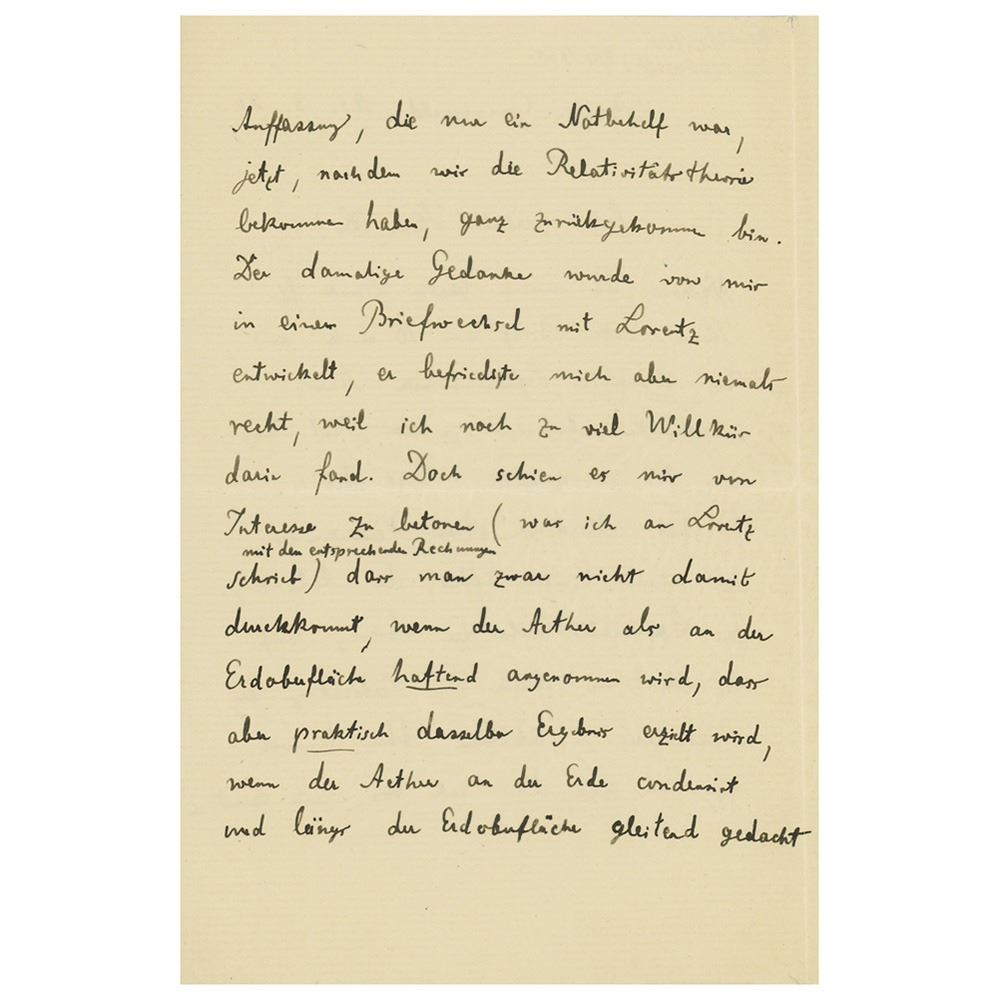 Auffassung, die nur ein Notbehelf war,
jetzt, nachdem wir die Relativitätstheorie
bekommen haben, ganz zurückgekommen bin.
Der damalige Gedanke wurde von mir
in einem Briefwechsel mit Lorentz
entwickelt, er befriedigte mich aber niemals
recht, weil ich noch zu viel Willkür
darin fand. Doch schien es mir von
Interesse zu betonen (was ich an Lorentz
mit den entsprechenden Rechnungen
schrieb) dass man zwar nicht damit
durchkommt, wenn der Aether als an der
Erdoberfläche haftend angenommen wird, dass
aber praktisch dasselbe Ergebnis erzielt wird,
wenn der Aether an der Erde condensirt
und längs der Erdoberfläche gleitend gedacht